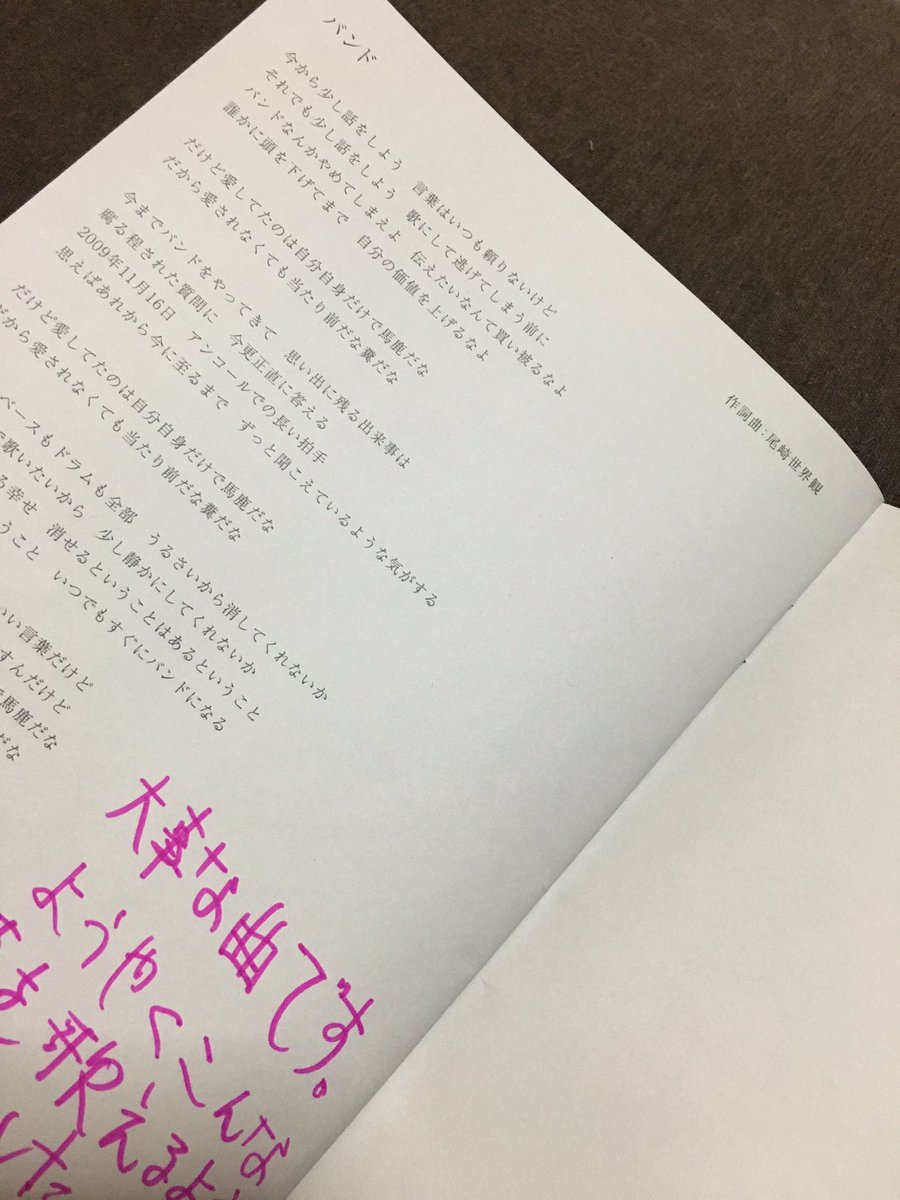 バンド
作詞曲：尾崎世界観
今から少し話をしよう　言葉はいつも頼りないけど
それでも少し話をしよう　歌にして逃げてしまう前に
バンドなんかやめてしまえよ　伝えたいなんて買い被るなよ
誰かに頭を下げてまで　自分の価値を上げるなよ
だけど愛してたのは自分自身だけで馬鹿だな
だから愛されなくても当たり前だな糞だな
今までバンドをやってきて　思い出に残る出来事は
腐る程された質問に　今更正直に答える
2009年11月16日　アンコールでの長い拍手
思えばあれから今に至るまで　ずっと聞こえているような気がする
だけど愛してたのは自分自身だけで馬鹿だな
だから愛されなくても当たり前だな糞だな
ベースもドラムも全部　うるさいから消してくれないか
歌いたいから　少し静かにしてくれないか
幸せ　消せるということはあるということ
こと　いつでもすぐにバンドになる
いい言葉だけど
すんだけど
馬鹿だな
だな
大事な曲です。
ようやくこんな
歌えるよ